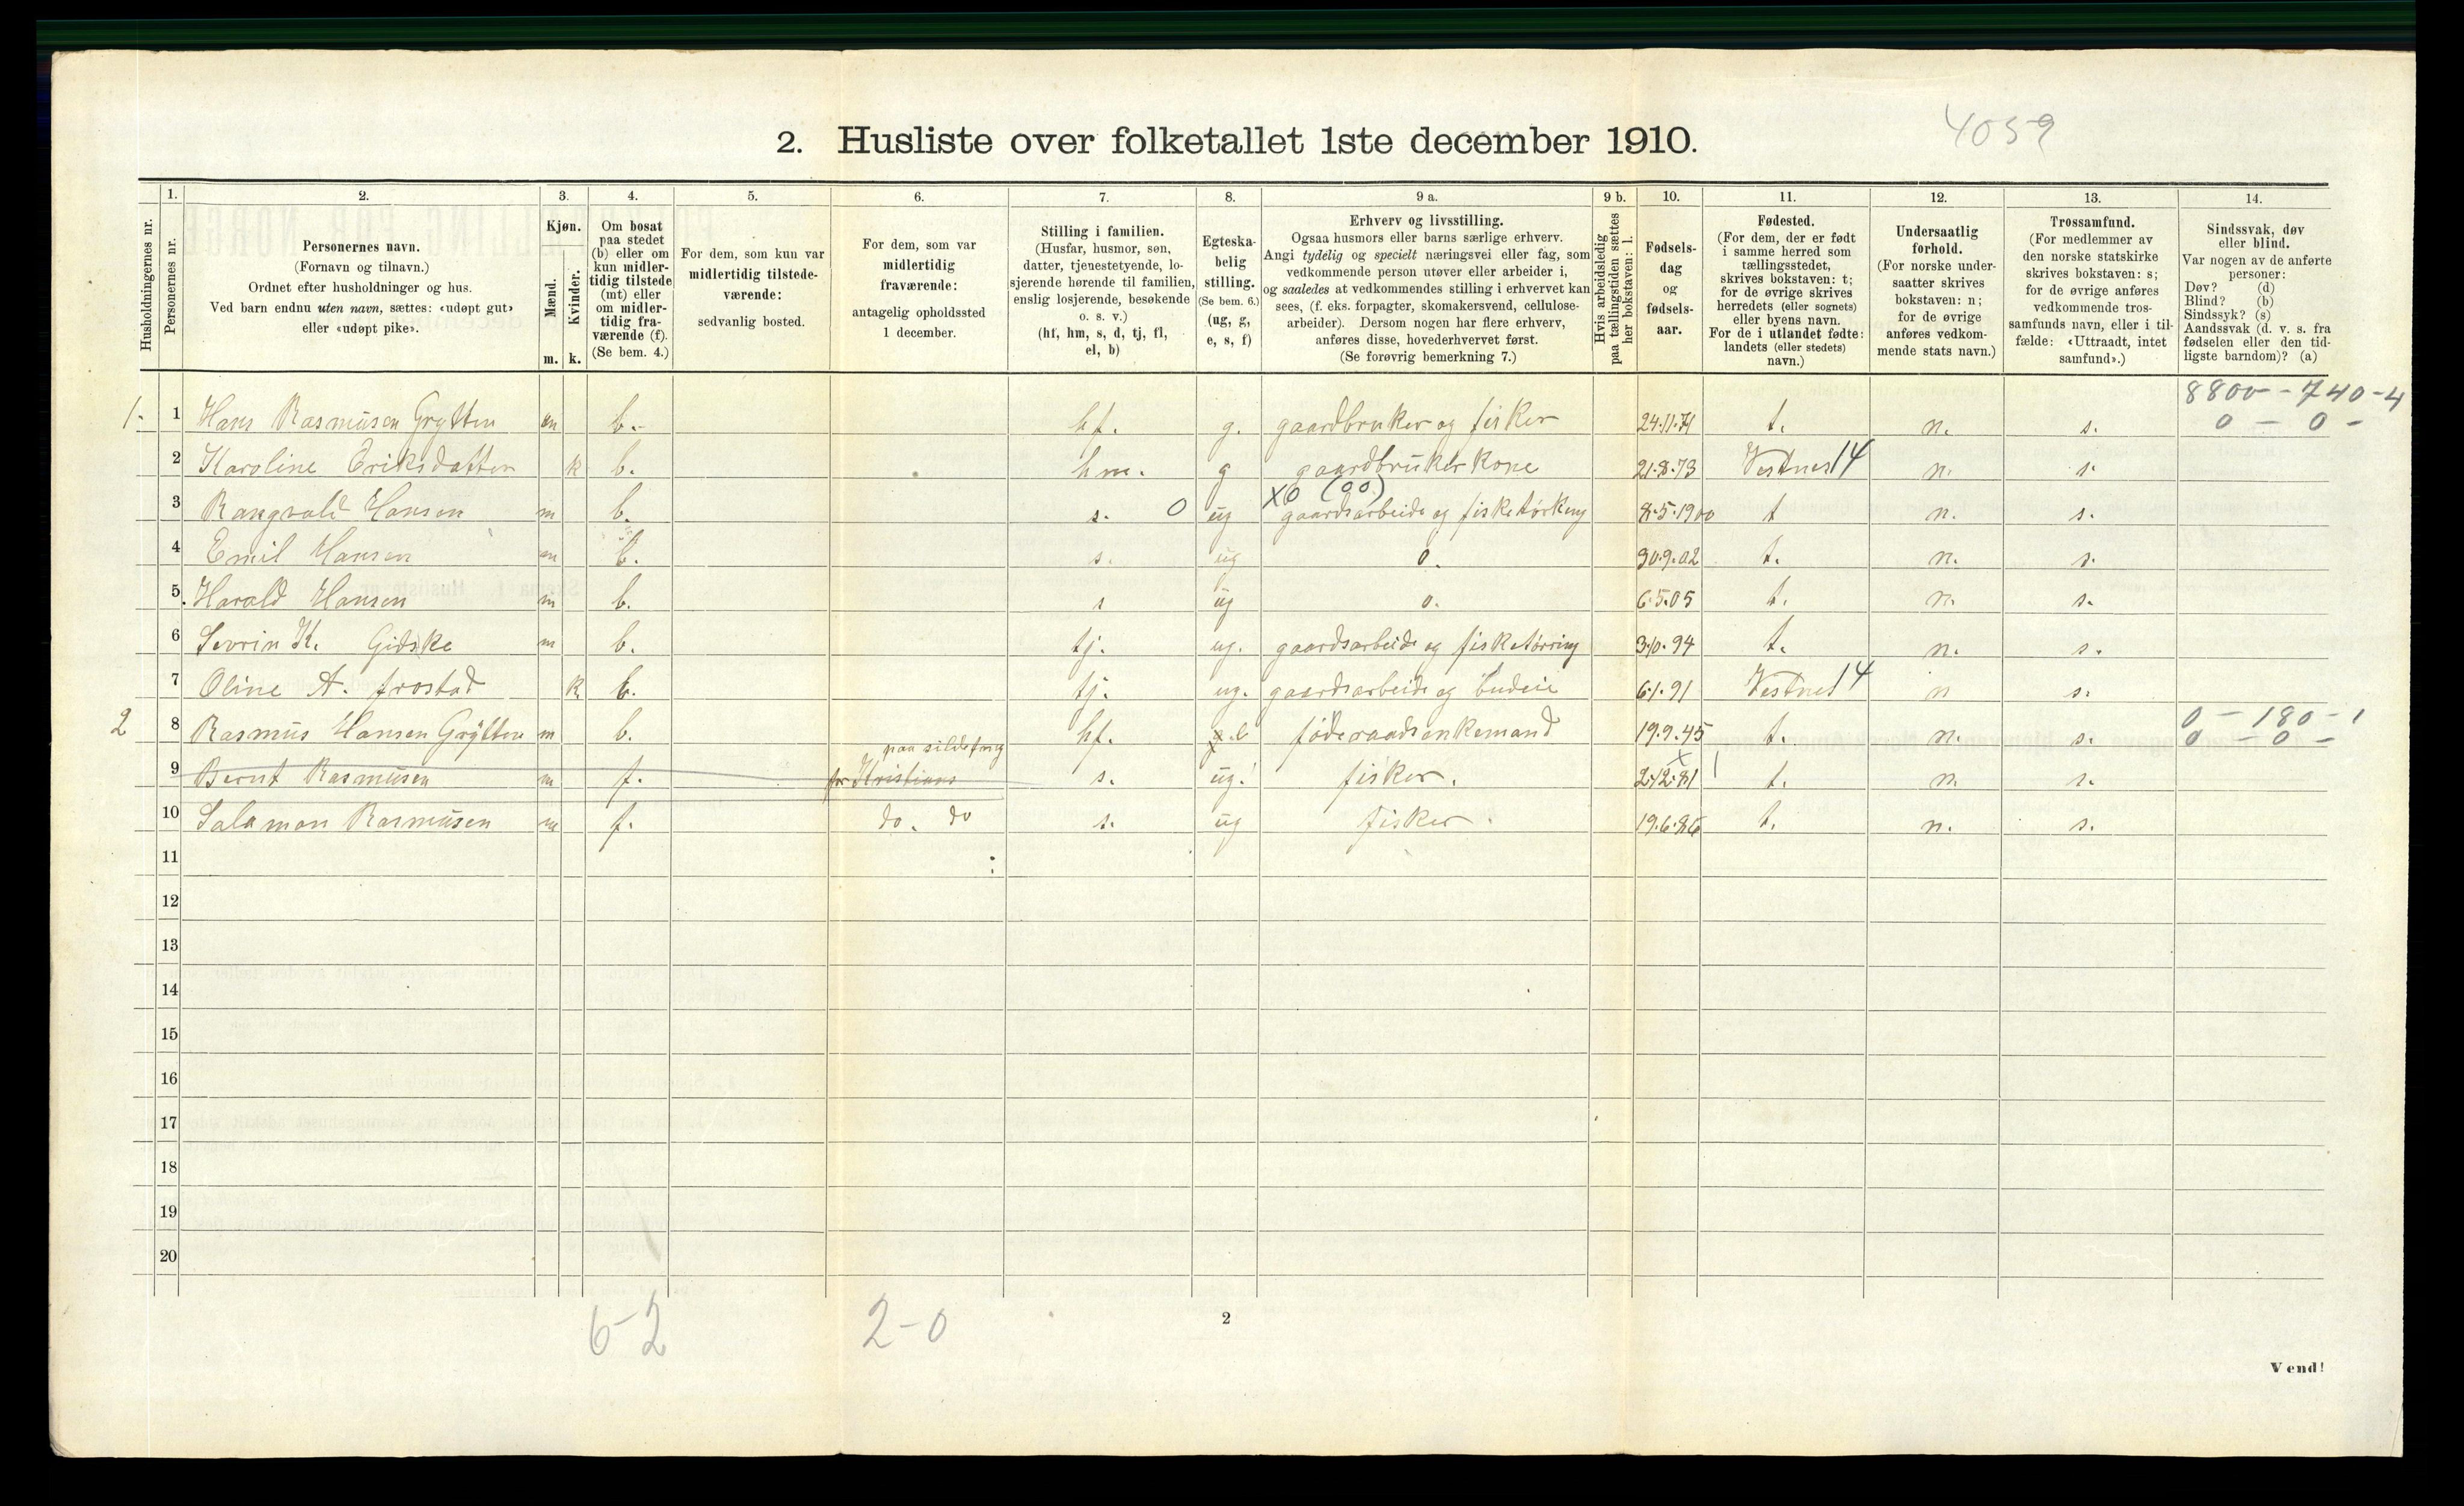 4059
2. Husliste over folketallet 1ste december 1910.
Husholdningernes nr.
1.
Personernes nr.
2.
Personernes navn.
(Fornavn og tilnavn.)
Ordnet efter husholdninger og hus.
Ved barn endnu uten navn, sættes: «udøpt gut»
eller «udøpt pike».
3.
Kjøn.
Mænd.
Kvinder.
m. k.
4.
Om bosat
paa stedet
(b) eller om
kun midler-
tidig tilstede
(mt) eller
om midler-
tidig fra-
værende (f).
(Se bem. 4.)
5.
For dem, som kun var
midlertidig tilstede-
værende:
sedvanlig bosted.
6.
For dem, som var
midlertidig
fraværende:
antagelig opholdssted
1 december.
7.
Stilling i familien.
(Husfar, husmor, søn,
datter, tjenestetyende, lo-
sjerende hørende til familien,
enslig losjerende, besøkende
o. s. v.)
(hf, hm, s, d, tj, fl,
el, b)
8.
Egteska-
belig
stilling.
(Se bem. 6.)
(ug, g,
e, s, f)
9 a.
Erhverv og livsstilling.
Ogsaa husmors eller barns særlige erhverv.
Angi tydelig og specielt næringsvei eller fag, som
vedkommende person utøver eller arbeider i,
og saaledes at vedkommendes stilling i erhvervet kan
sees, (f. eks. forpagter, skomakersvend, cellulose-
arbeider). Dersom nogen har flere erhverv,
anføres disse, hovederhvervet først.
(Se forøvrig bemerkning 7.)
9 b.
Hvis arbeidsledig
paa tællingstiden sættes
her bokstaven: l.
10.
Fødsels-
dag
og
fødsels-
aar.
11.
Fødested.
(For dem, der er født
i samme herred som
tællingsstedet,
skrives bokstaven: t;
for de øvrige skrives
herredets (eller sognets)
eller byens navn.
For de i utlandet fødte:
landets (eller stedets)
navn.)
12.
Undersaatlig
forhold.
(For norske under-
saatter skrives
bokstaven: n;
for de øvrige
anføres vedkom-
mende stats navn.)
13.
Trossamfund.
(For medlemmer av
den norske statskirke
skrives bokstaven: s;
for de øvrige anføres
vedkommende tros-
samfunds navn, eller i til-
fælde: «Uttraadt, intet
samfund».)
14.
Sindssvak, døv
eller blind.
Var nogen av de anførte
personer:
Døv? (d)
Blind? (b)
Sindssyk? (s)
Aandssvak (d. v. s. fra
fødselen eller den tid-
ligste barndom)? (a)
8800 - 740 - 4
1. 1 Hans Rasmusen Grytten m b. hf. g. gaardbruker og fisker 24.11.71 t. n. s. 0 - 0 -
2 Karoline Eriksdatter k b. hm. g gaardbruker kone 21.8.73 Vestnes 14 n. s.
X0 (00)
3 Rangvald Hansen m b. s. 0 ug gaardsarbeide og fisketørking 8.5.1900 t n. s.
4 Emil Hansen m b. s. ug 0. 30.9.02 t. n. s.
5 Harald Hansen m b. s ug 0. 6.5.05 t. n. s.
6 Sevrin K. Gidske m b. tj. ug. gaardsarbeide og fisketørring 3.10.94 t. n. s.
7 Oline A. frostad k b. tj. ug. gaardsarbeide og budeie 6.1.91 Vestnes 14 n s.
0 - 180 - 1
2 8 Rasmus Hansen Grytten m b. hf. e føderaadsenkemand 19.9.45 t. n. s. 0 - 0 -
paa sildefang
9 Bernt Rasmusen m f. for Kristians s. ug. fisker. 2.12.81 t. n. s.
10 Salamon Rasmusen m f. do. do s. ug fisker. 19.6.86 t. n. s.
11
12
13
14
15
16
17
18
19
20
6-2 2-0
2
Vend!